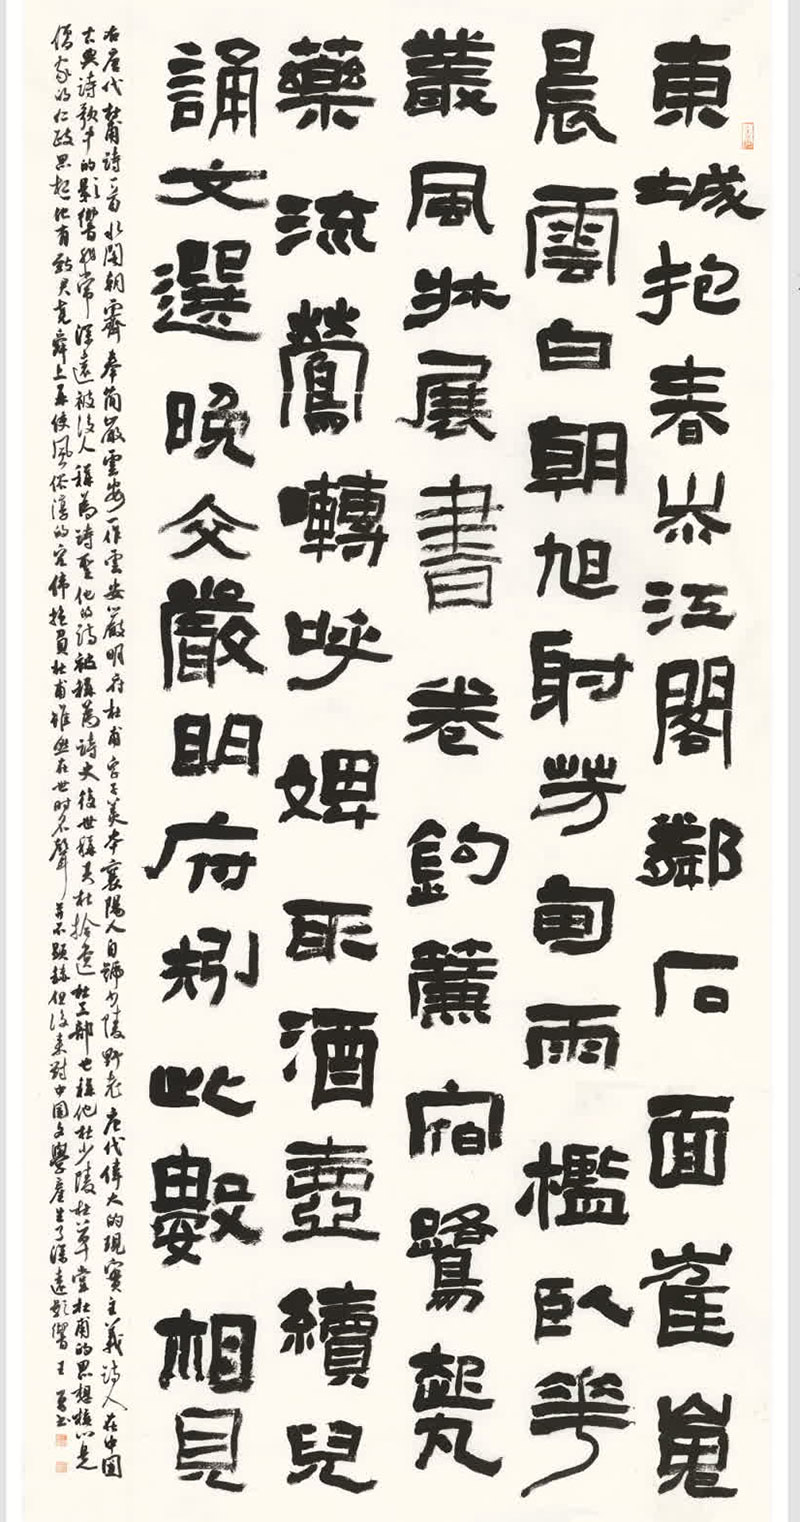 東城抱春岑江閣鄰石面崔嵬
晨雲白朝旭射芳甸雨檻臥花
叢風牀展書卷鈎簾宿鷺起丸
藥流鶯囀呼婢取酒壺續兒
誦文選晚交嚴明府矧此數相見
右唐代杜甫詩一首水閣朝霽奉簡嚴雲安一作雲安嚴明府杜甫字子美本襄陽人自號少陵野老唐代偉大的現實主義詩人在中国
古典詩歌中的影響非常深遠被後人稱為詩聖他的詩被稱為詩史後世稱其杜拾遺杜工部也稱他杜少陵杜草堂杜甫的思想核心是
儒家的仁政思想他有致君堯舜上再使風俗淳的宏偉抱負杜甫雖然在世时名聲并不顯赫但後来對中国文學產生了深遠影響王